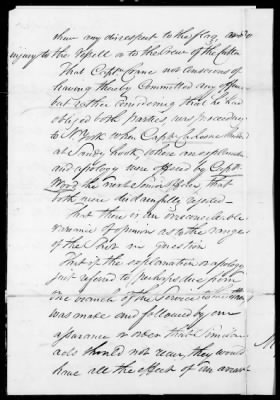 show any disrespect to the flag and no
injury to the Vessell or to the Crew of the Cutter
That Capt Crane not conscious of
having thereby Committed any offence
but rather Considering that he had
obliged both parties, was proceeding
to N York when Capt
at Sandy Hook, where an explanation
and apology were offered by Capt
Ward the more Senior Officer that
both were disdainfully rejected
That there is an irreconcileable
variance of opinion as to the ranges
of the Shot in question
That if the explanation or apology
just referred to perhaps due from
one branch of the Service to the other
was made and followed by our
assurance or order that Similar
acts should not recur, they would
have all the effect of an